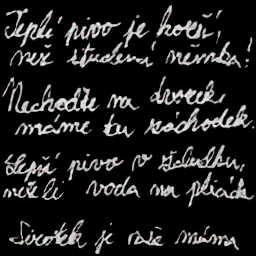 Teplé pivo je horší,
než studená němka!
Nechoďte na dvorek,
máme tu záchodek.
Lepší pivo v žaludku,
nežli voda na plicách
Sirotek je naše máma